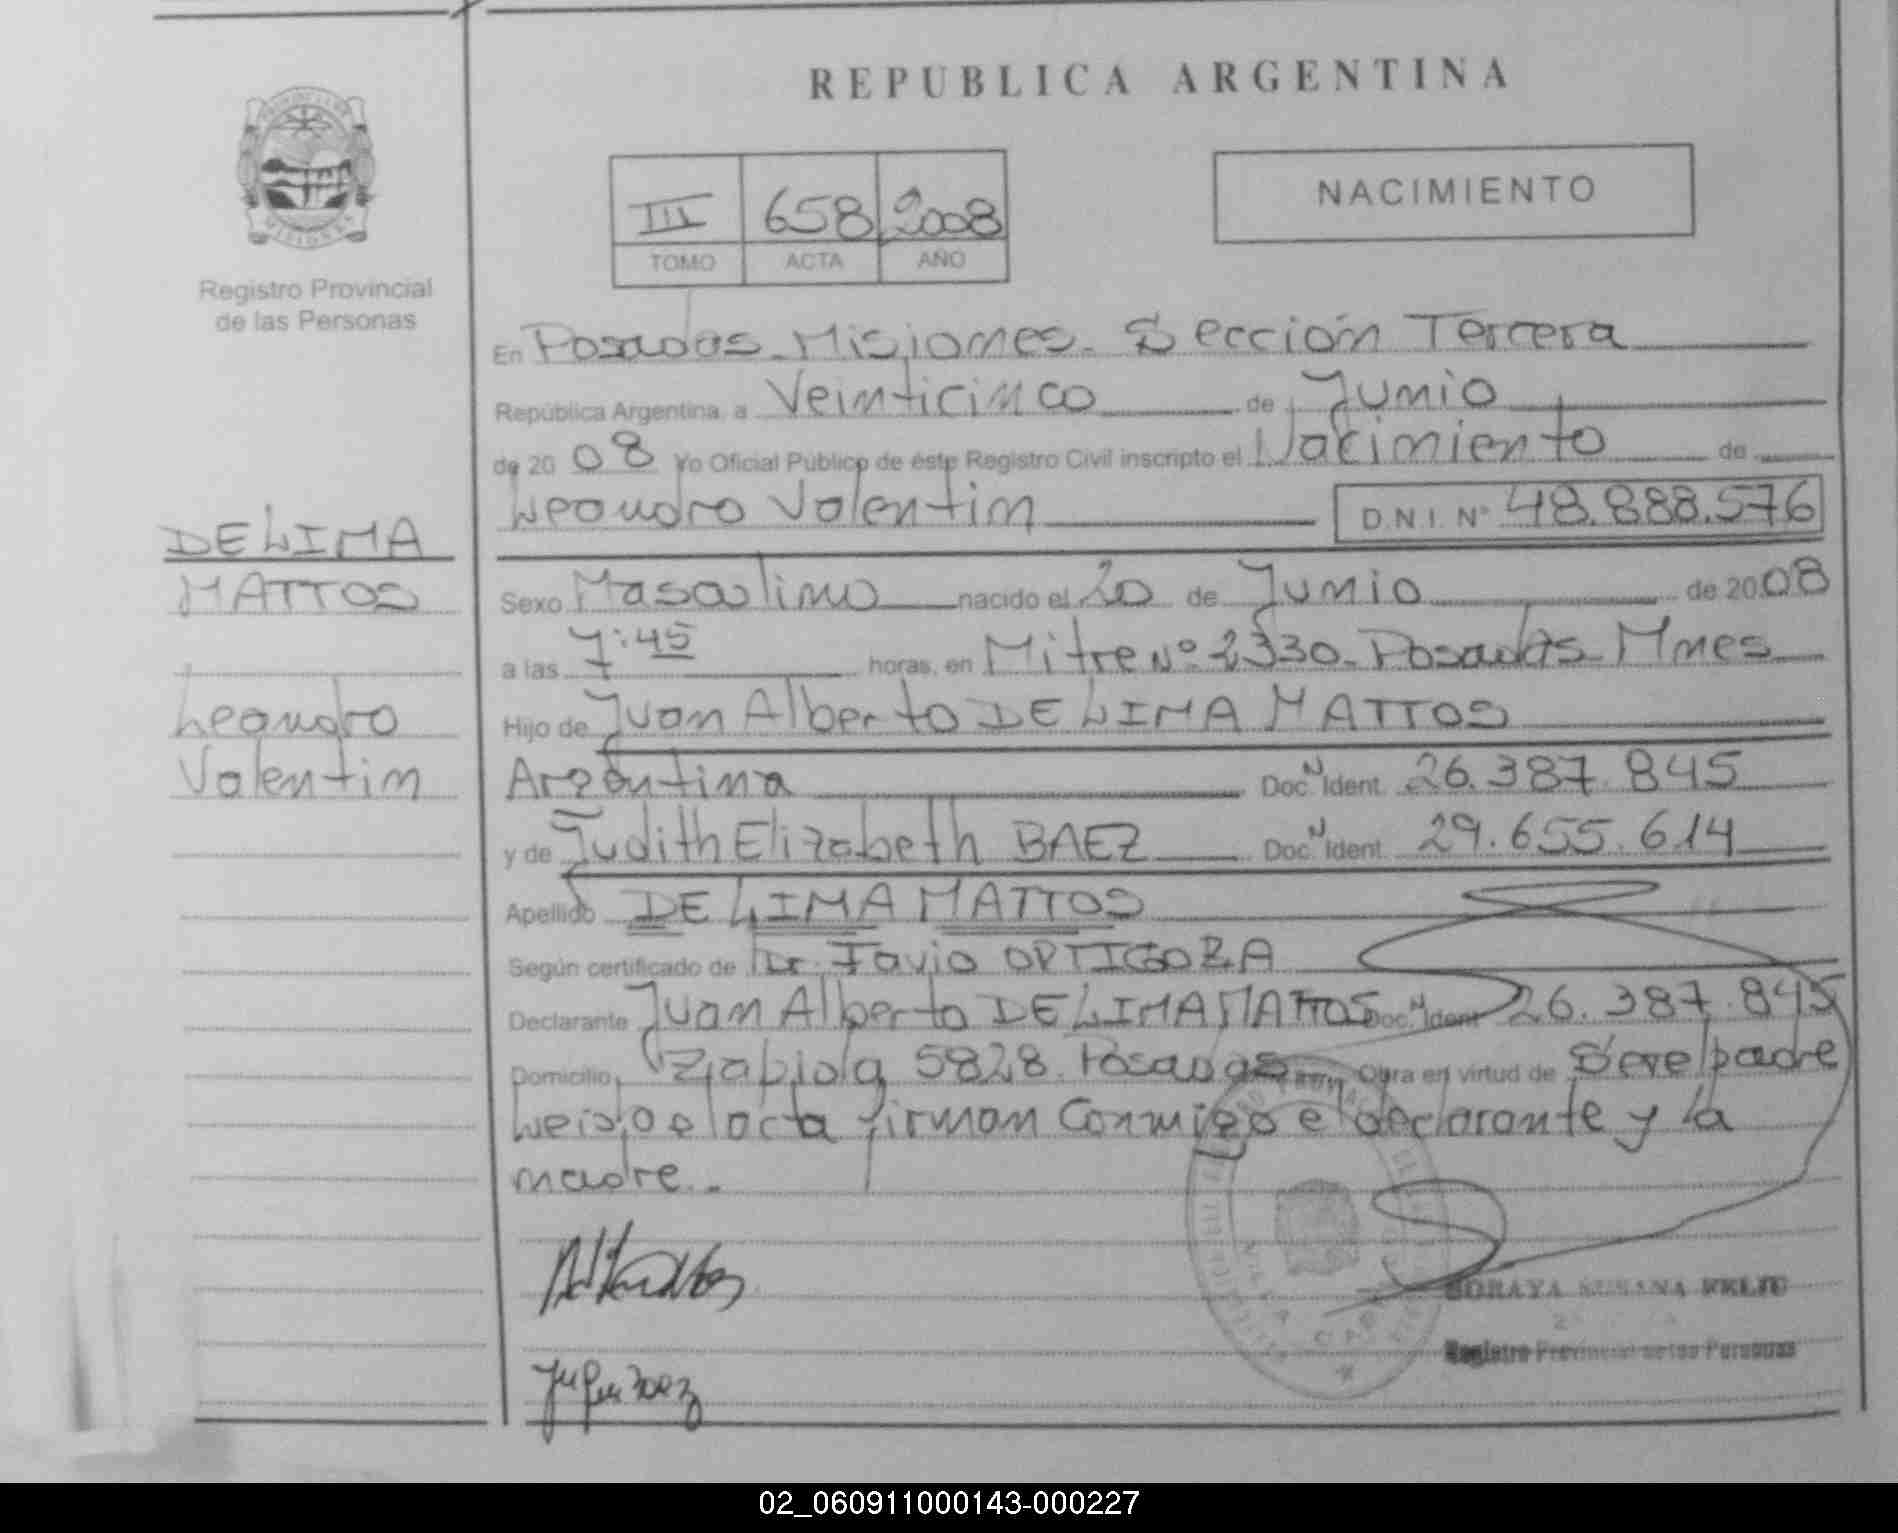 REPUBLICA ARGENTINA
III 658 2008
TOMO ACTA AÑO
NACIMIENTO
Registro Provincial
de las Personas
DE LIMA
MATTOS
Leandro
Valentin
En Posadas Misiones. Sección Tercera
República Argentina, a Veinticinco de Junio
de 2008 Yo Oficial Público de éste Registro Civil inscripto el Nacimiento de
Leandro Valentin D.N.I. Nº 48.888.576
Sexo Masculino nacido el 20 de Junio de 2008
a las 7:45 horas, en Mitre Nº 2330. Posadas Mnes
Hijo de Juan Alberto DE LIMA MATTOS
Argentina Doc. N Ident. 26.387.845
y de Judith Elizabeth BAEZ Doc. N Ident. 29.655.614
Apellido DE LIMA MATTOS
Según certificado de Dr. Favio ORTIGOZA
Declarante Juan Alberto DE LIMA MATTOS Doc. N Ident 26.387.845
Domicilio 5828 Posadas Obra en virtud de Ser el padre
Leida el acta firman Conmigo el declarante y la
madre.
SORAYA SUSANA
Registro Provincial de las Personas
02_060911000143-000227